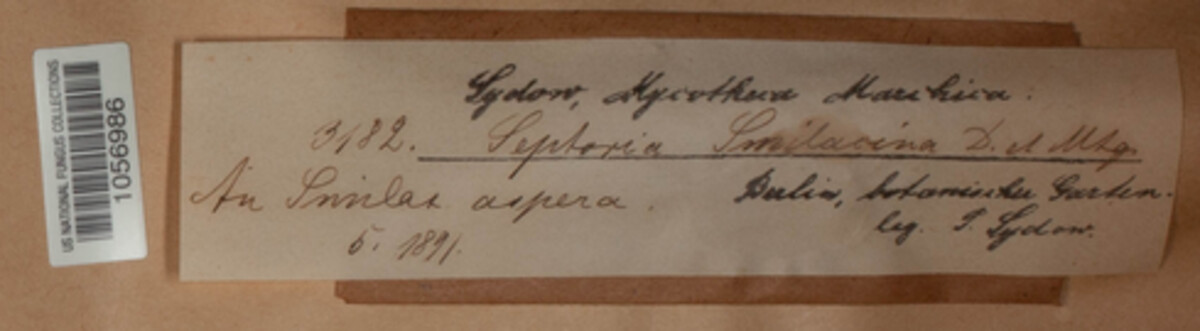 US NATIONAL FUNGUS COLLECTIONS
1056986
Sydow, Mycotheca Marchica.
3182. Septoria Smilacina D. et Mtg.
An Smilax aspera.
Berlin, botanischer Garten.
5. 1891.
leg. P. Sydow.